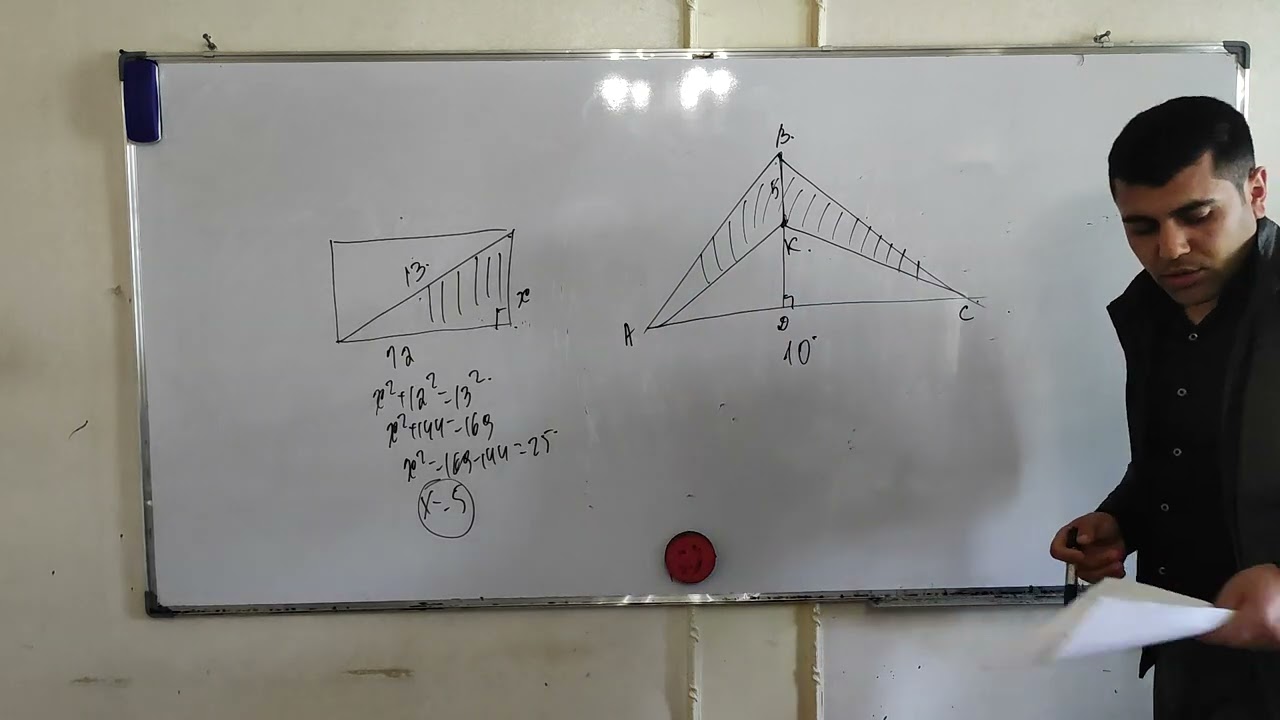 13
x
12
x²+12²=13²
x²+144=169
x²=169-144=25
x=5
B
5
K
A
D
C
10